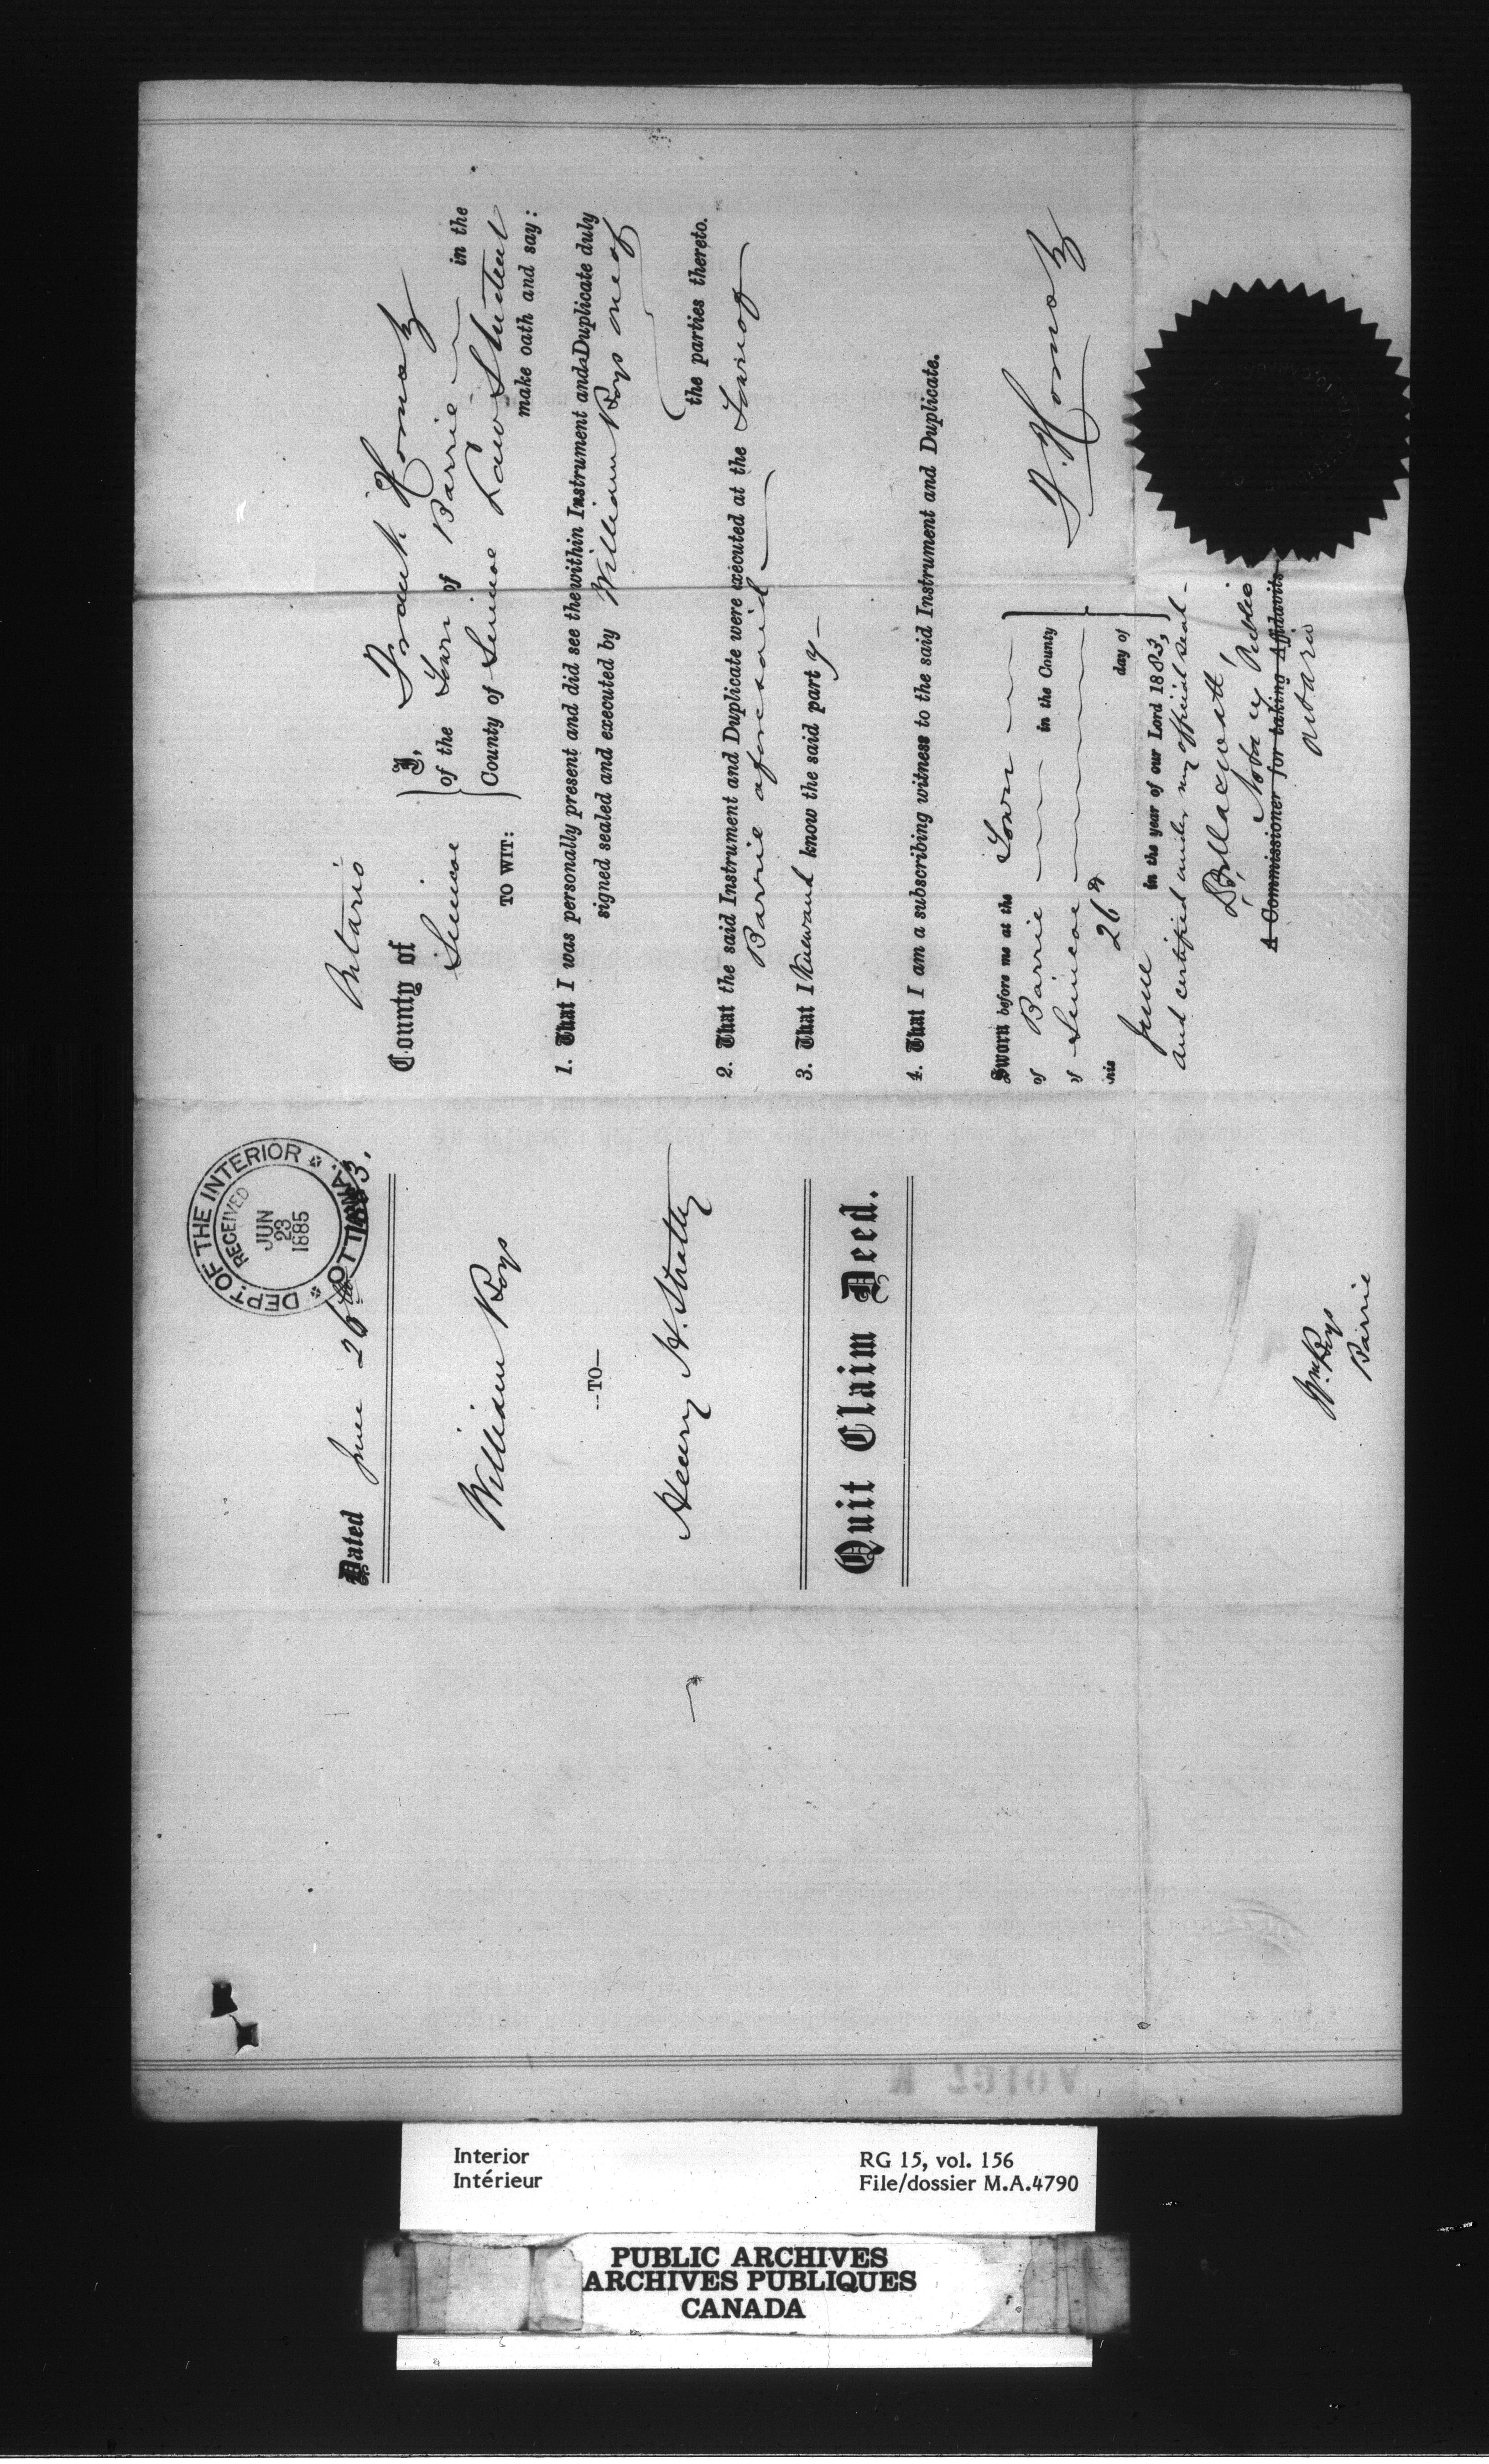 Dated June 26th 1883.
DEPT. OF THE INTERIOR
RECEIVED
JUN
23
1885
OTTAWA
William Boys
--TO--
Henry H. Strathy
Quit Claim Deed.
Wm. Boys
Barrie
Ontario
County of
Simcoe
TO WIT:
I, Frank Hornsby
of the Town of Barrie in the
County of Simcoe Law Student
make oath and say:
1. That I was personally present and did see the within Instrument and Duplicate duly
signed sealed and executed by William Boys one of
the parties thereto.
2. That the said Instrument and Duplicate were executed at the Town of
Barrie aforesaid
3. That I know the said party
4. That I am a subscribing witness to the said Instrument and Duplicate.
Sworn before me at the Town
of Barrie in the County
of Simcoe
his 26th day of
June in the year of our Lord 1883,
and certified under my official seal -
F. Hornsby
Notary Public
A Commissioner for taking Affidavits
Ontario
Interior
Intérieur
RG 15, vol. 156
File/dossier M.A.4790
PUBLIC ARCHIVES
ARCHIVES PUBLIQUES
CANADA